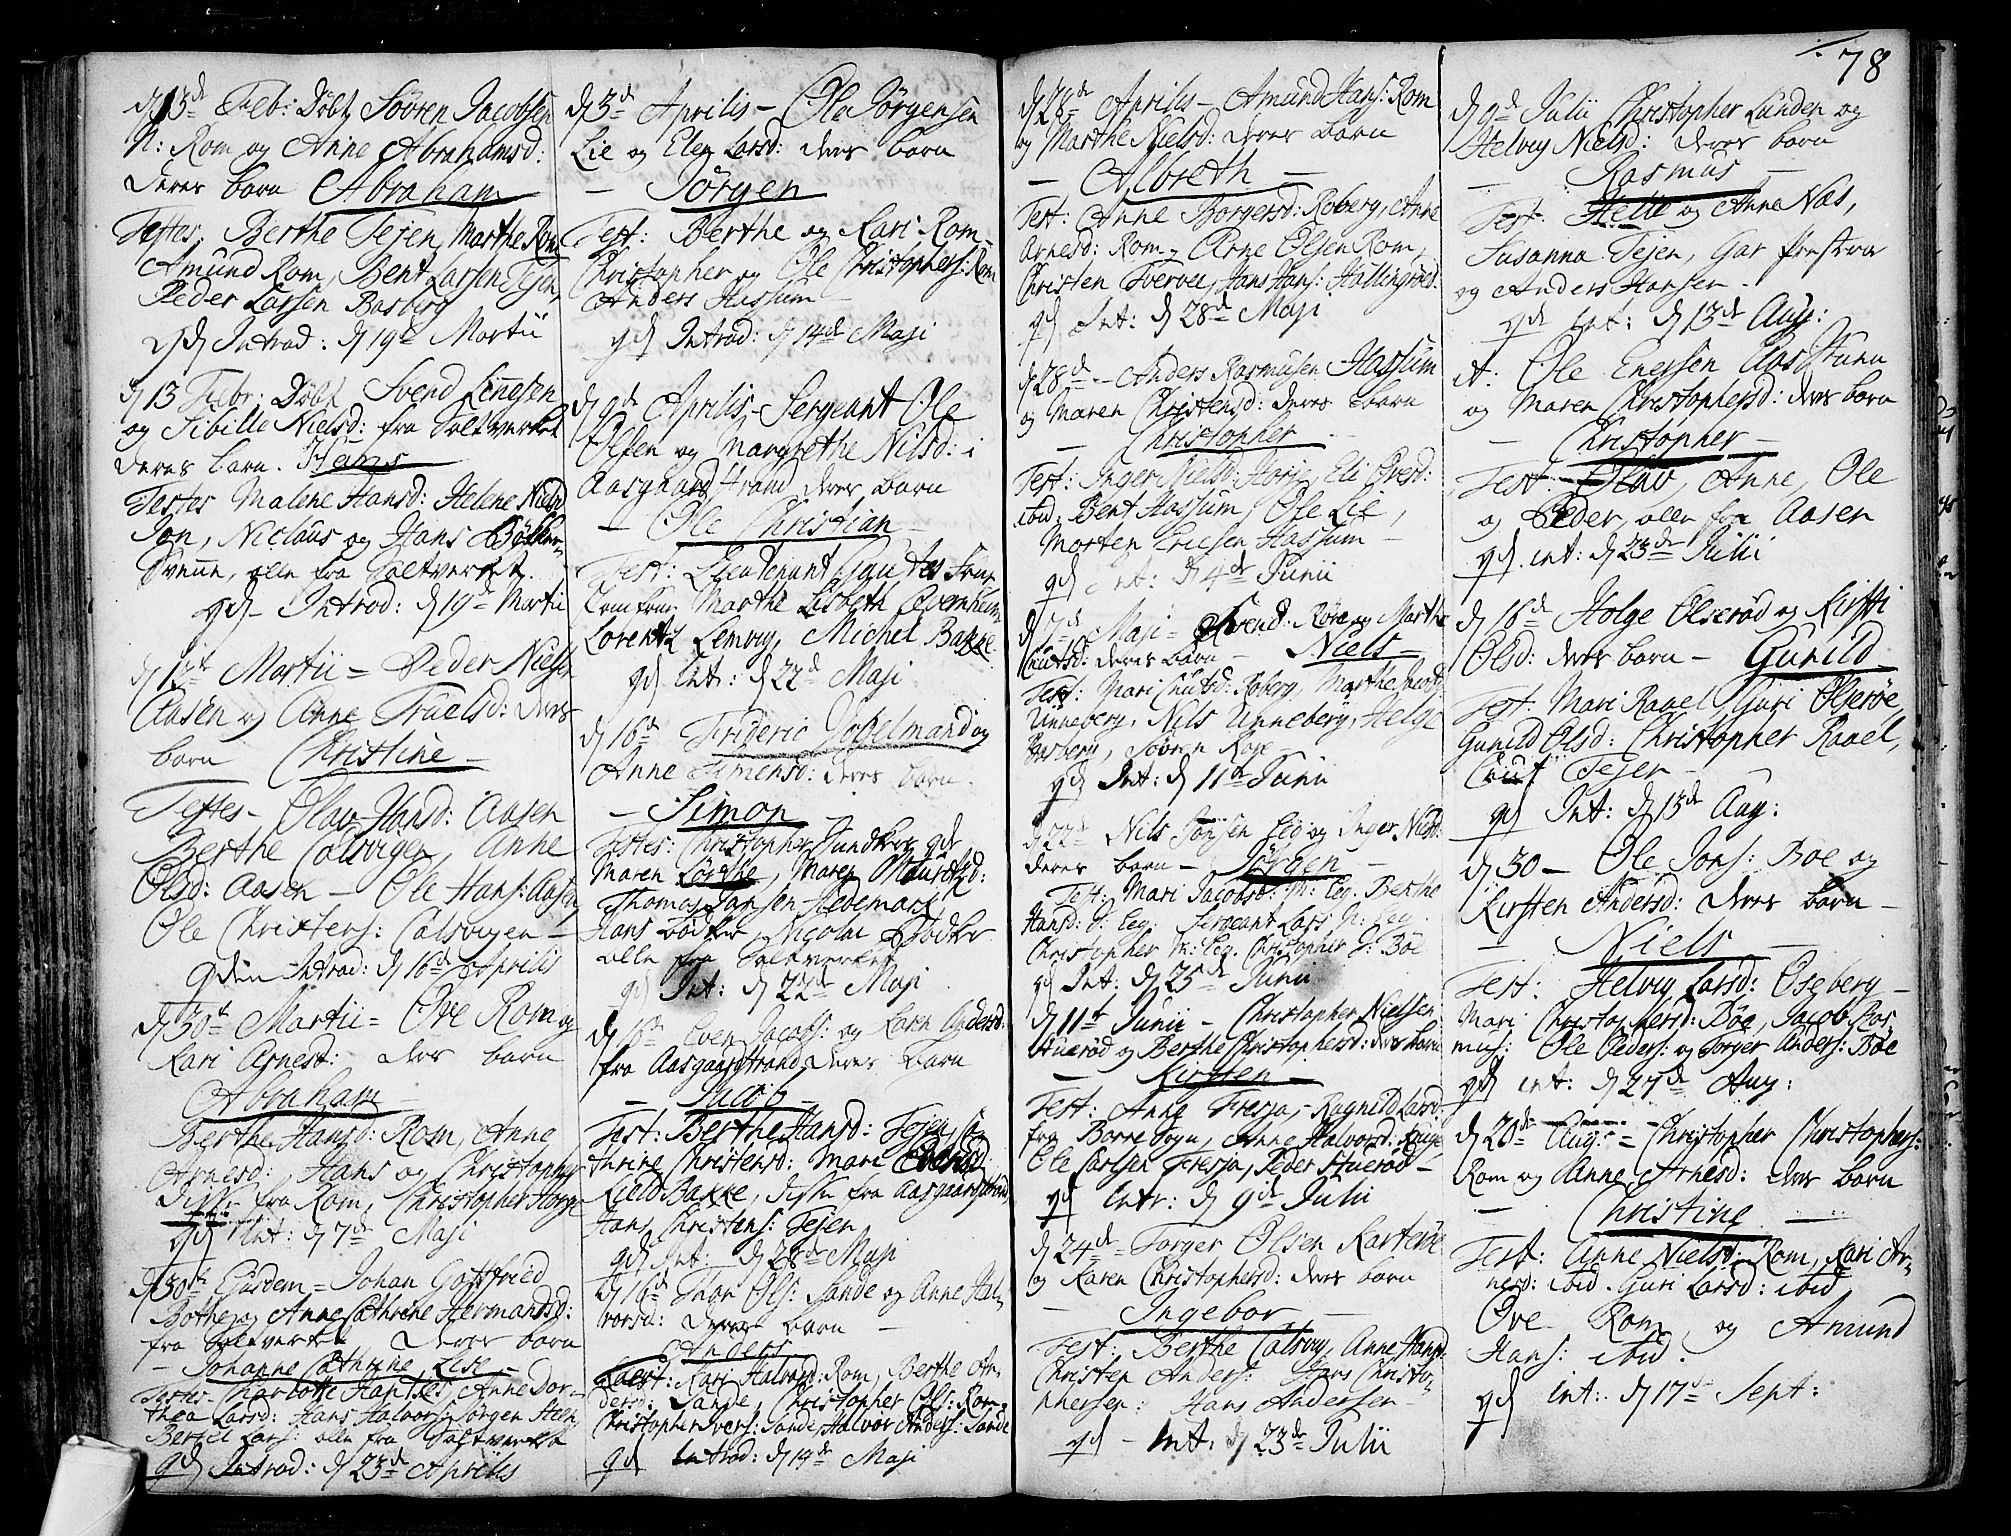 78
d 13de Feb: Döbt Söören Jacobsen
N: Rom og Anne Abrahamsd:
deres barn Abraham
Testes, Berthe Tejen, Marthe Rom
Amund Rom, Bent Larsen Tejen,
Peder Larsen Basberg
qd Introd: d 19de Martii
d 13 Febr: Döbt Svend Enersen
og Sibille Nielsd: fra Saltverket
deres barn. Hans
Testes Malene Hansd: Helene Nielsd
Jon, Niclaus og Hans Bödker-
Svenne, alle fra Saltverket.
qd - Introd: d 19de Martii
d 12te Martii = Peder Nielsen
Aasen og Anne Truelsd: deres
barn Christine
Testes - Olav Hansd: Aasen
Berthe Calsvigen, Anne
Olsd: Aasen - Ole Hans: Aasen,
Ole Christens: Calsvigen -
qden Introd: d 16de Aprilis
d 30te Martii = Ove Rom og
Kari Arnesd: deres barn
Abraham
Berthe Hansd: Rom, Anne
Arnesd: Hans og Christopher
disse fra Rom, Christopher Horge
qd Int: d 7de Maji
d 30te Ejusdem = Johan Gottfried
Bothe og Anne Cathrine Hermandsd:
fra Saltverket deres barn
- Johanne Cathrine Lise -
Testes Charlotte Hantkes, Anne Dor-
thea Larsd: Hans Halvors: Jörgen Steen
Bertel Lars: alle fra Saltverket
qd Introd: d 23de Aprilis
d 3de Aprilis - Ole Jörgensen
Lie og Elen Larsd: deres barn
- Jörgen
Test: Berthe og Kari Rom -
Christopher og Ole Christophers: Rom
Anders Hassum -
qd Introd: d 14de Maji
d 9de Aprilis, - Sergeant Ole
Olsen og Margrethe Nilsd: i
Aasgaardstrand deres barn
- Ole Christian -
Test: Lieutenant
Jomfrue Marthe Lisbeth
Lorentz Lemvig, Michel Bakke
qd Int: d 22de Maji
d 16de Frideric Dobelmand og
Anne Simensd: deres barn.
- Simon -
Testes: Christopher Sundbye qd
Maren Lörche, Maren Mauritzd:
Thomas Jansen Hedemark
Hans Bödker, Nicolai Bödker
alle fra Saltverket
qd Int: d 22de Maji
d 16de Even Jacobs: og Karen Andersd:
fra Aasgaardstrand deres barn
- Jacob -
Test: Berthe Hansd: Tejen, Ca-
thrine Christensd: Mari
Kield Bakke, disse fra Aasgaardstrand,
Hans Christens: Tejen
qd Int: d 28de Maji
d 16de Thor Ols: Sande og Anne Hal-
vorsd: deres barn -
Anders
Test: Kari Halvorsd: Rom, Berthe An-
dersd: Sande, Christopher Ols: Rom,
Christopher Ivers: Sande, Halvor Anders: Sande
qd Introd: d 14de Maji
d 28de Aprilis - Amund Hans: Rom
og Marthe Nielsd: deres barn
- Albreth -
Test: Anne Borgersd: Roberg, Anne
Arnesd: Rom - Arne Olsen Rom,
Christen Tvervei, Hans Hans: Hallingröd:
qd Int: d 28de Maji
d 28de - Anders Rasmusen Hassum
og Maren Christensd: deres barn
- Christopher -
Test: Inger Nielsd: Horje, Eli Ovesd:
ibid: Bent Hassum, Ole Lie,
Morten Ericsen Hassum -
qd Int: d 4de Junii
d 7de Maji = Svend Röre og Marthe
Cnutsd: deres barn - Niels -
Test: Mari Cnutsd: Roberg, Marthe
Unneberg, Nils Unneberg, Helge
Basberg, Sövren Roje -
qd Int: d 11te Junii
d 22de Nils Jonsen Eeg og Inger Nielsd:
deres barn - Jörgen -
Test: Mari Jacobsd: M: Eeg, Berthe
Hansd: S: Eeg Sergeant Lars N: Eeg.
Christopher M: Eeg, Christopher S: Böe
qd Int: d 25de Junii
d 11te Junii - Christopher Nielsen
Stueröd og Berthe Christophersd: deres barn
- Kirsten -
Test: Anne Fresja, - Ragnild Larsd:
fra Borre Sogn, Anne Halvorsd:
Ole Carlsen Fresja, Peder Stueröd -
qd Intr: d 9de Julii
d 24de = Torger Olsen Karteröe
og Karen Christophersd: deres barn
Ingebor
Test: Berthe Calsvig, Anne Hansd:
Christen Anders: Hans Christo-
phersen: Hans Andersen -
qd - Int: d 23de Julii
d 9de Julii Christopher Lunden og
Helvig Nielsd: deres barn
- Rasmus -
Test: Helle og Anne Næs,
Susanna Tejen, Gar Præstrøe
og Anders Hansen -
qd Int: d 13de Aug:
it: Ole Enersen Aasstuen
og Maren Christophersd: deres barn
- Christopher -
Test: Olav, Anne, Ole
og Peder, alle fra Aasen
qd int: d 23de Julii
d 16de Holge Olseröd og Kirsti
Olsd: deres barn - Gunild -
Test: Mari Ravel, Guri Olseröe,
Gunild Olsd: Christopher Ravel,
Cnut Tejen -
qd Int: d 13de Aug:
d 30 - Ole Jons: Boe og
Kirsten Andersd: deres barn -
- Niels -
Test: Helvig Larsd: Oseberg -
Mari Christophersd: Böe, Jacob Ras-
mus: Ole Peders: og Torger Anders: Böe
qd int: d 27de Aug:
d 20de Aug: = Christopher Christophers:
Rom og Anne Arnesd: deres barn
- Christine -
Test: Anne Nielsd: Rom, Kari Ar-
nesd: ibid. Guri Larsd: ibid
Ove Rom og Amund
Hans: ibid.
qd int: d 17de Sept: